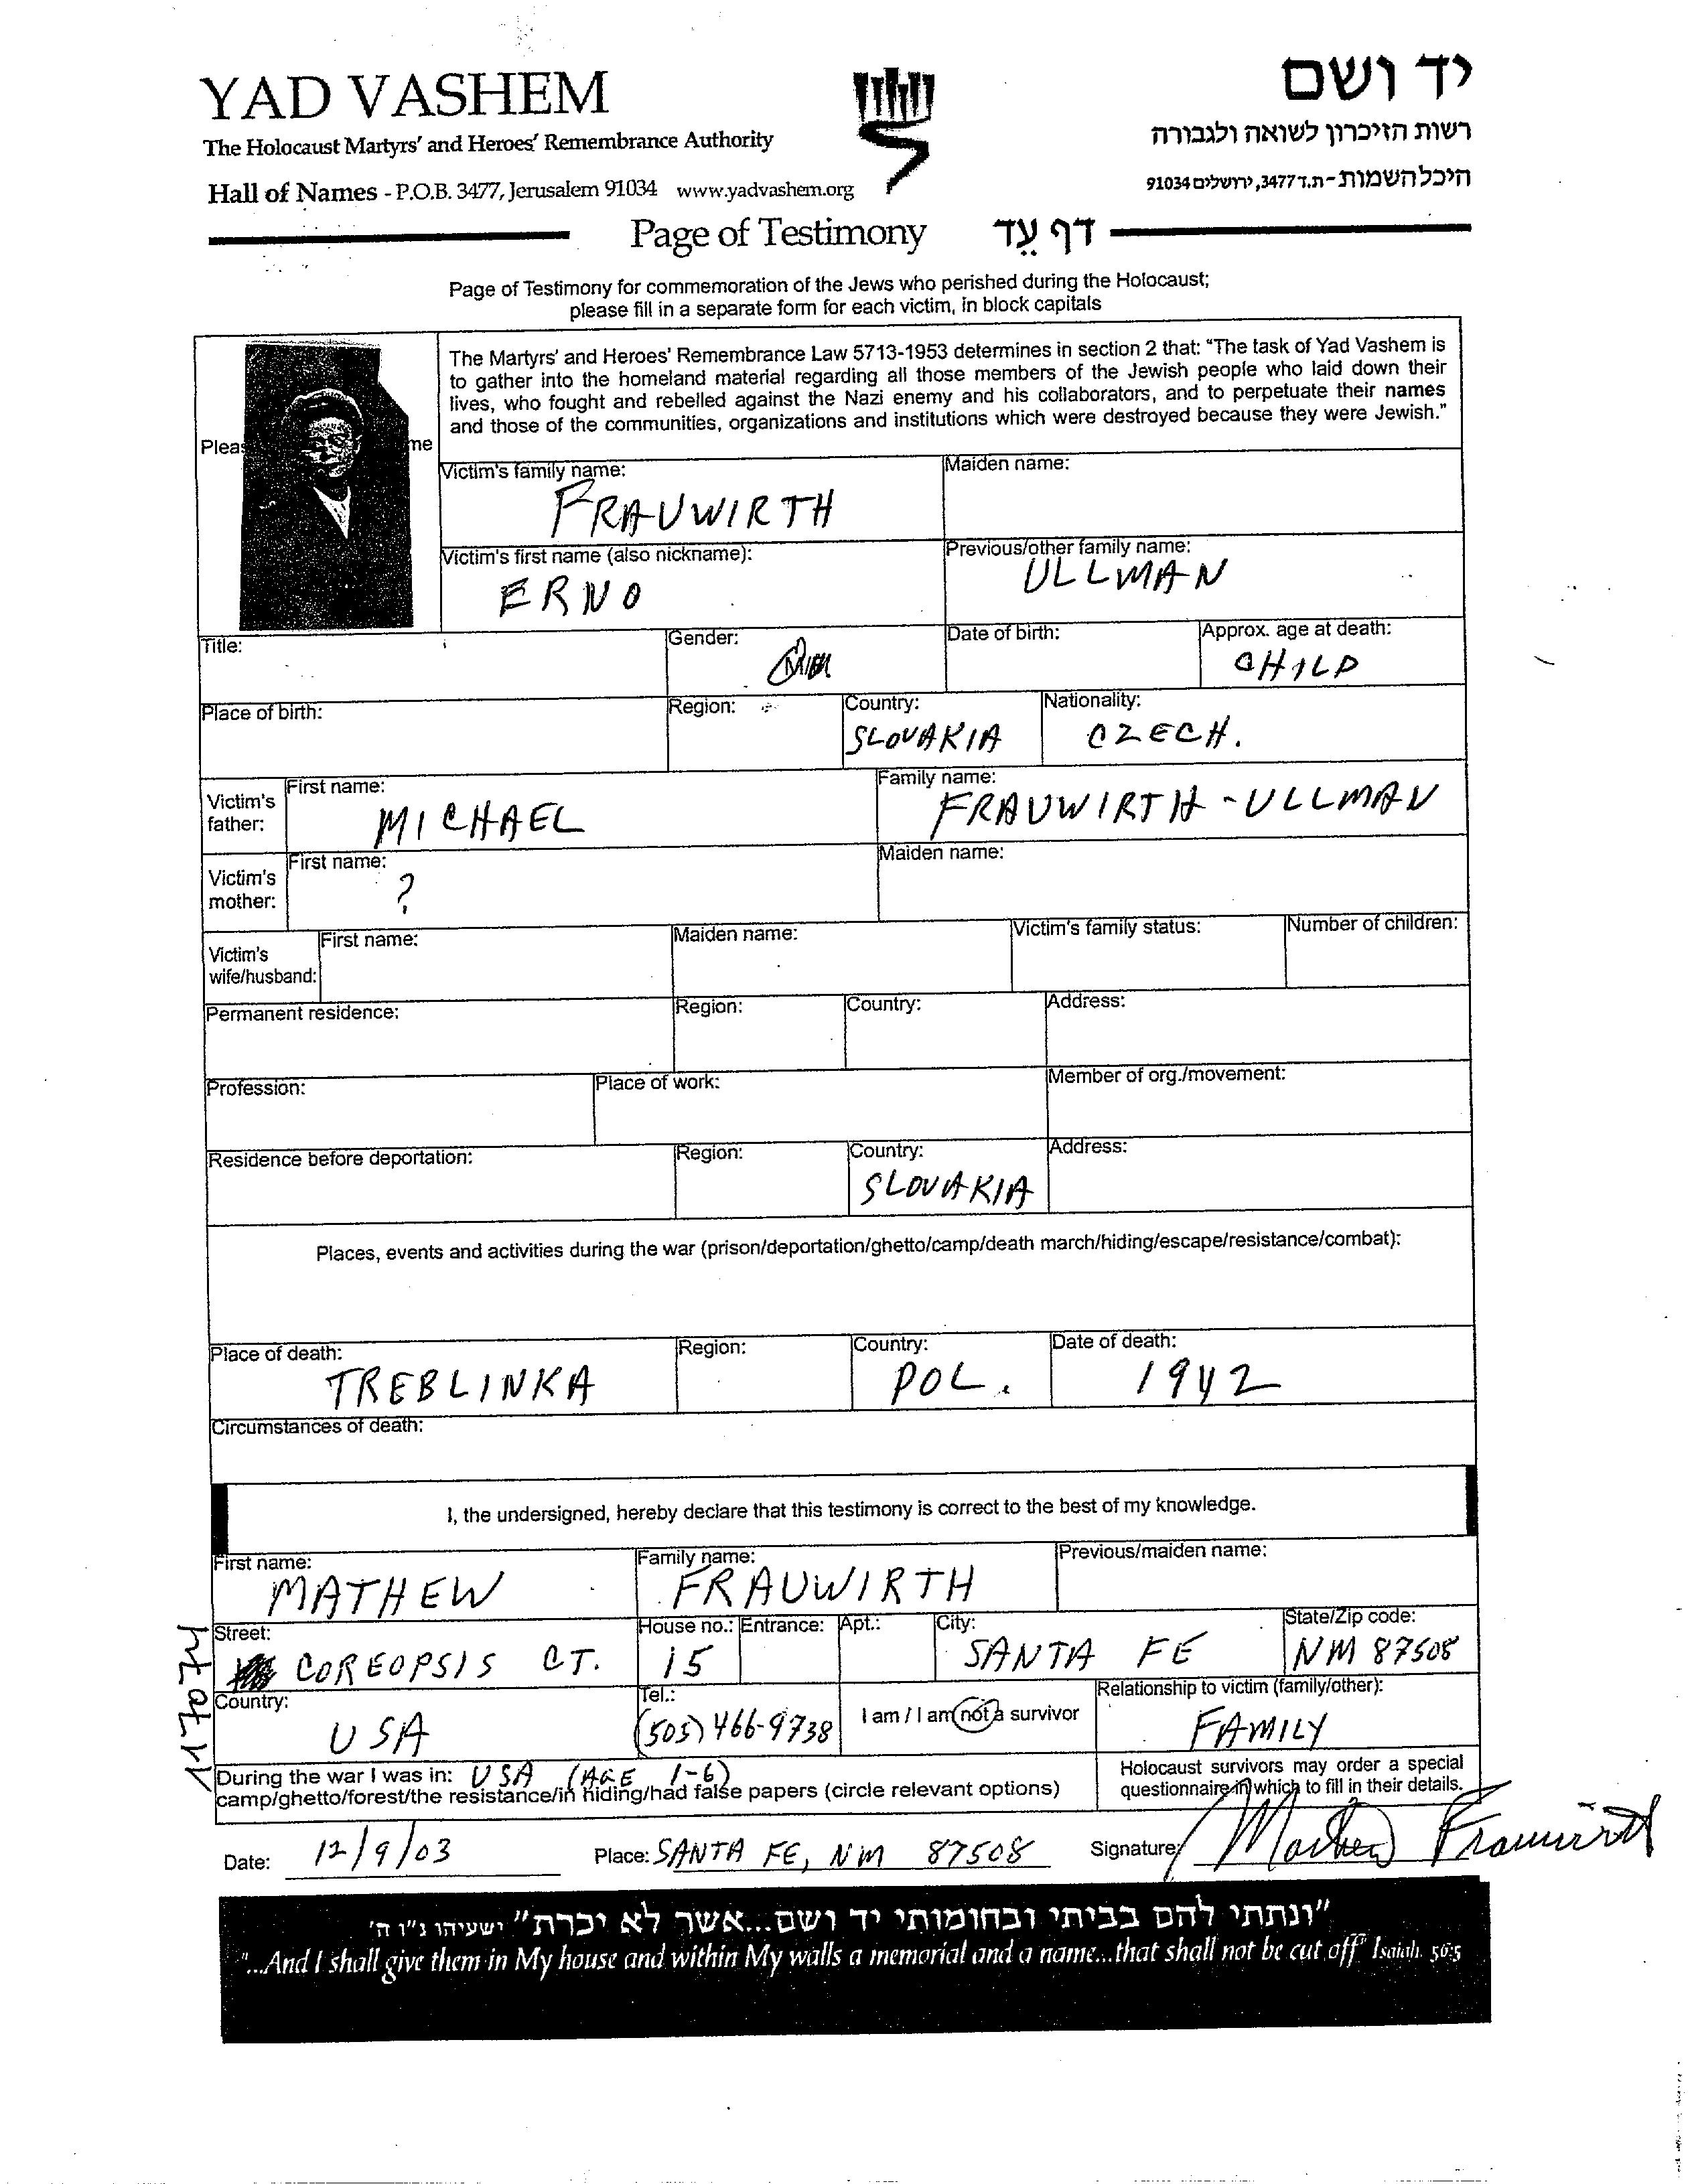 YAD VASHEM
יד ושם
The Holocaust Martyrs' and Heroes' Remembrance Authority
רשות הזיכרון לשואה ולגבורה
Hall of Names - P.O.B. 3477, Jerusalem 91034 www.yadvashem.org
היכל השמות - ת.ד 3477, ירושלים 91034
Page of Testimony דף עֵד
Page of Testimony for commemoration of the Jews who perished during the Holocaust;
please fill in a separate form for each victim, in block capitals
The Martyrs' and Heroes' Remembrance Law 5713-1953 determines in section 2 that: "The task of Yad Vashem is
to gather into the homeland material regarding all those members of the Jewish people who laid down their
lives, who fought and rebelled against the Nazi enemy and his collaborators, and to perpetuate their names
and those of the communities, organizations and institutions which were destroyed because they were Jewish."
Plea me
Victim's family name: Maiden name:
FRAUWIRTH
Victim's first name (also nickname): Previous/other family name:
ERNO ULLMAN
Title: Gender: Date of birth: Approx. age at death:
CHILD
Place of birth: Region: Country: Nationality:
SLOVAKIA CZECH.
Victim's father: First name: Family name:
MICHAEL FRAUWIRTH - ULLMAN
Victim's mother: First name: Maiden name:
?
Victim's wife/husband: First name: Maiden name: Victim's family status: Number of children:
Permanent residence: Region: Country: Address:
Profession: Place of work: Member of org./movement:
Residence before deportation: Region: Country: Address:
SLOVAKIA
Places, events and activities during the war (prison/deportation/ghetto/camp/death march/hiding/escape/resistance/combat):
Place of death: Region: Country: Date of death:
TREBLINKA POL. 1942
Circumstances of death:
I, the undersigned, hereby declare that this testimony is correct to the best of my knowledge.
First name: Family name: Previous/maiden name:
MATHEW FRAUWIRTH
Street: House no.: Entrance: Apt.: City: State/Zip code:
COREOPSIS CT. 15 SANTA FE NM 87508
Country: Tel.: I am / I am not a survivor Relationship to victim (family/other):
USA (505) 466-9738 FAMILY
During the war I was in: USA (AGE 1-6)
camp/ghetto/forest/the resistance/in hiding/had false papers (circle relevant options)
Holocaust survivors may order a special
questionnaire in which to fill in their details.
Date: 12/9/03 Place: SANTA FE, NM 87508 Signature: Mathew Frauwirth
"ונתתי להם בביתי ובחומותי יד ושם...אשר לא יכרת" ישעיהו נ"ו ה'
"...And I shall give them in My house and within My walls a memorial and a name...that shall not be cut off" Isaiah. 56:5